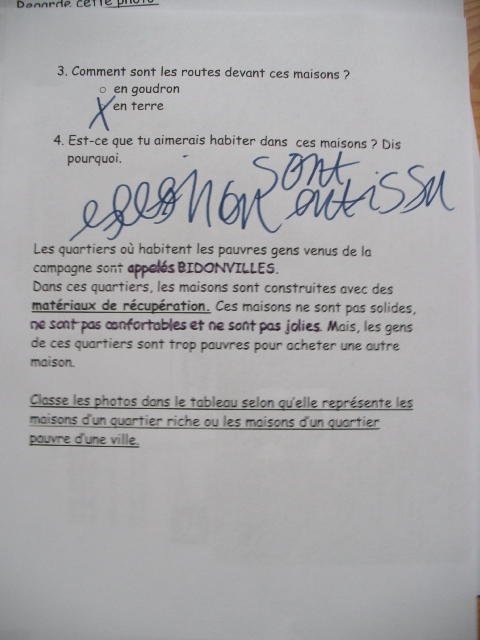 Regarde cette photo
3. Comment sont les routes devant ces maisons ?
o en goudron
X en terre
4. Est-ce que tu aimerais habiter dans ces maisons ? Dis
pourquoi.
non sont
Les quartiers où habitent les pauvres gens venus de la
campagne sont appelés BIDONVILLES.
Dans ces quartiers, les maisons sont construites avec des
matériaux de récupération. Ces maisons ne sont pas solides,
ne sont pas confortables et ne sont pas jolies. Mais, les gens
de ces quartiers sont trop pauvres pour acheter une autre
maison.
Classe les photos dans le tableau selon qu'elle représente les
maisons d'un quartier riche ou les maisons d'un quartier
pauvre d'une ville.